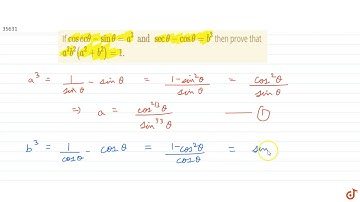 35631
If cosecθ - sinθ = a³ and secθ - cosθ = b³ then prove that
a²b²(a² + b²) = 1.
a³ = 1/sinθ - sinθ = 1-sin²θ/sinθ = cos²θ/sinθ
⇒ a = cos^{2/3}θ/sin^{1/3}θ —— ①
b³ = 1/cosθ - cosθ = 1-cos²θ/cosθ = sin
doubtnut